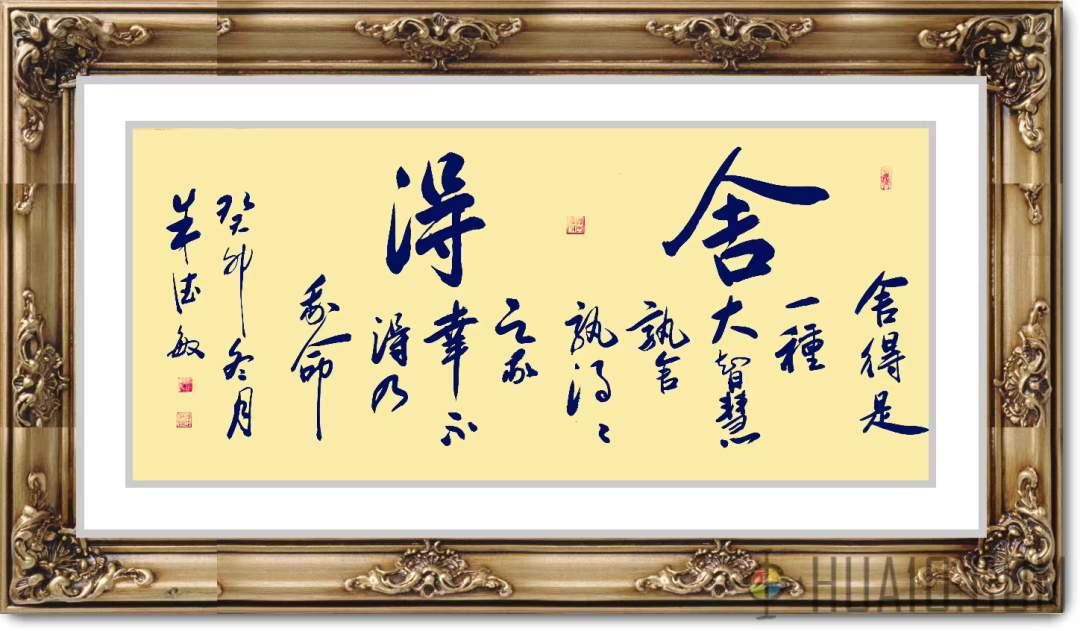 舍得
舍得是
一種
大智慧
孰舍
孰得〻
之我
幸不
得乃
我命
癸卯冬月
德敏
HUA10.COM